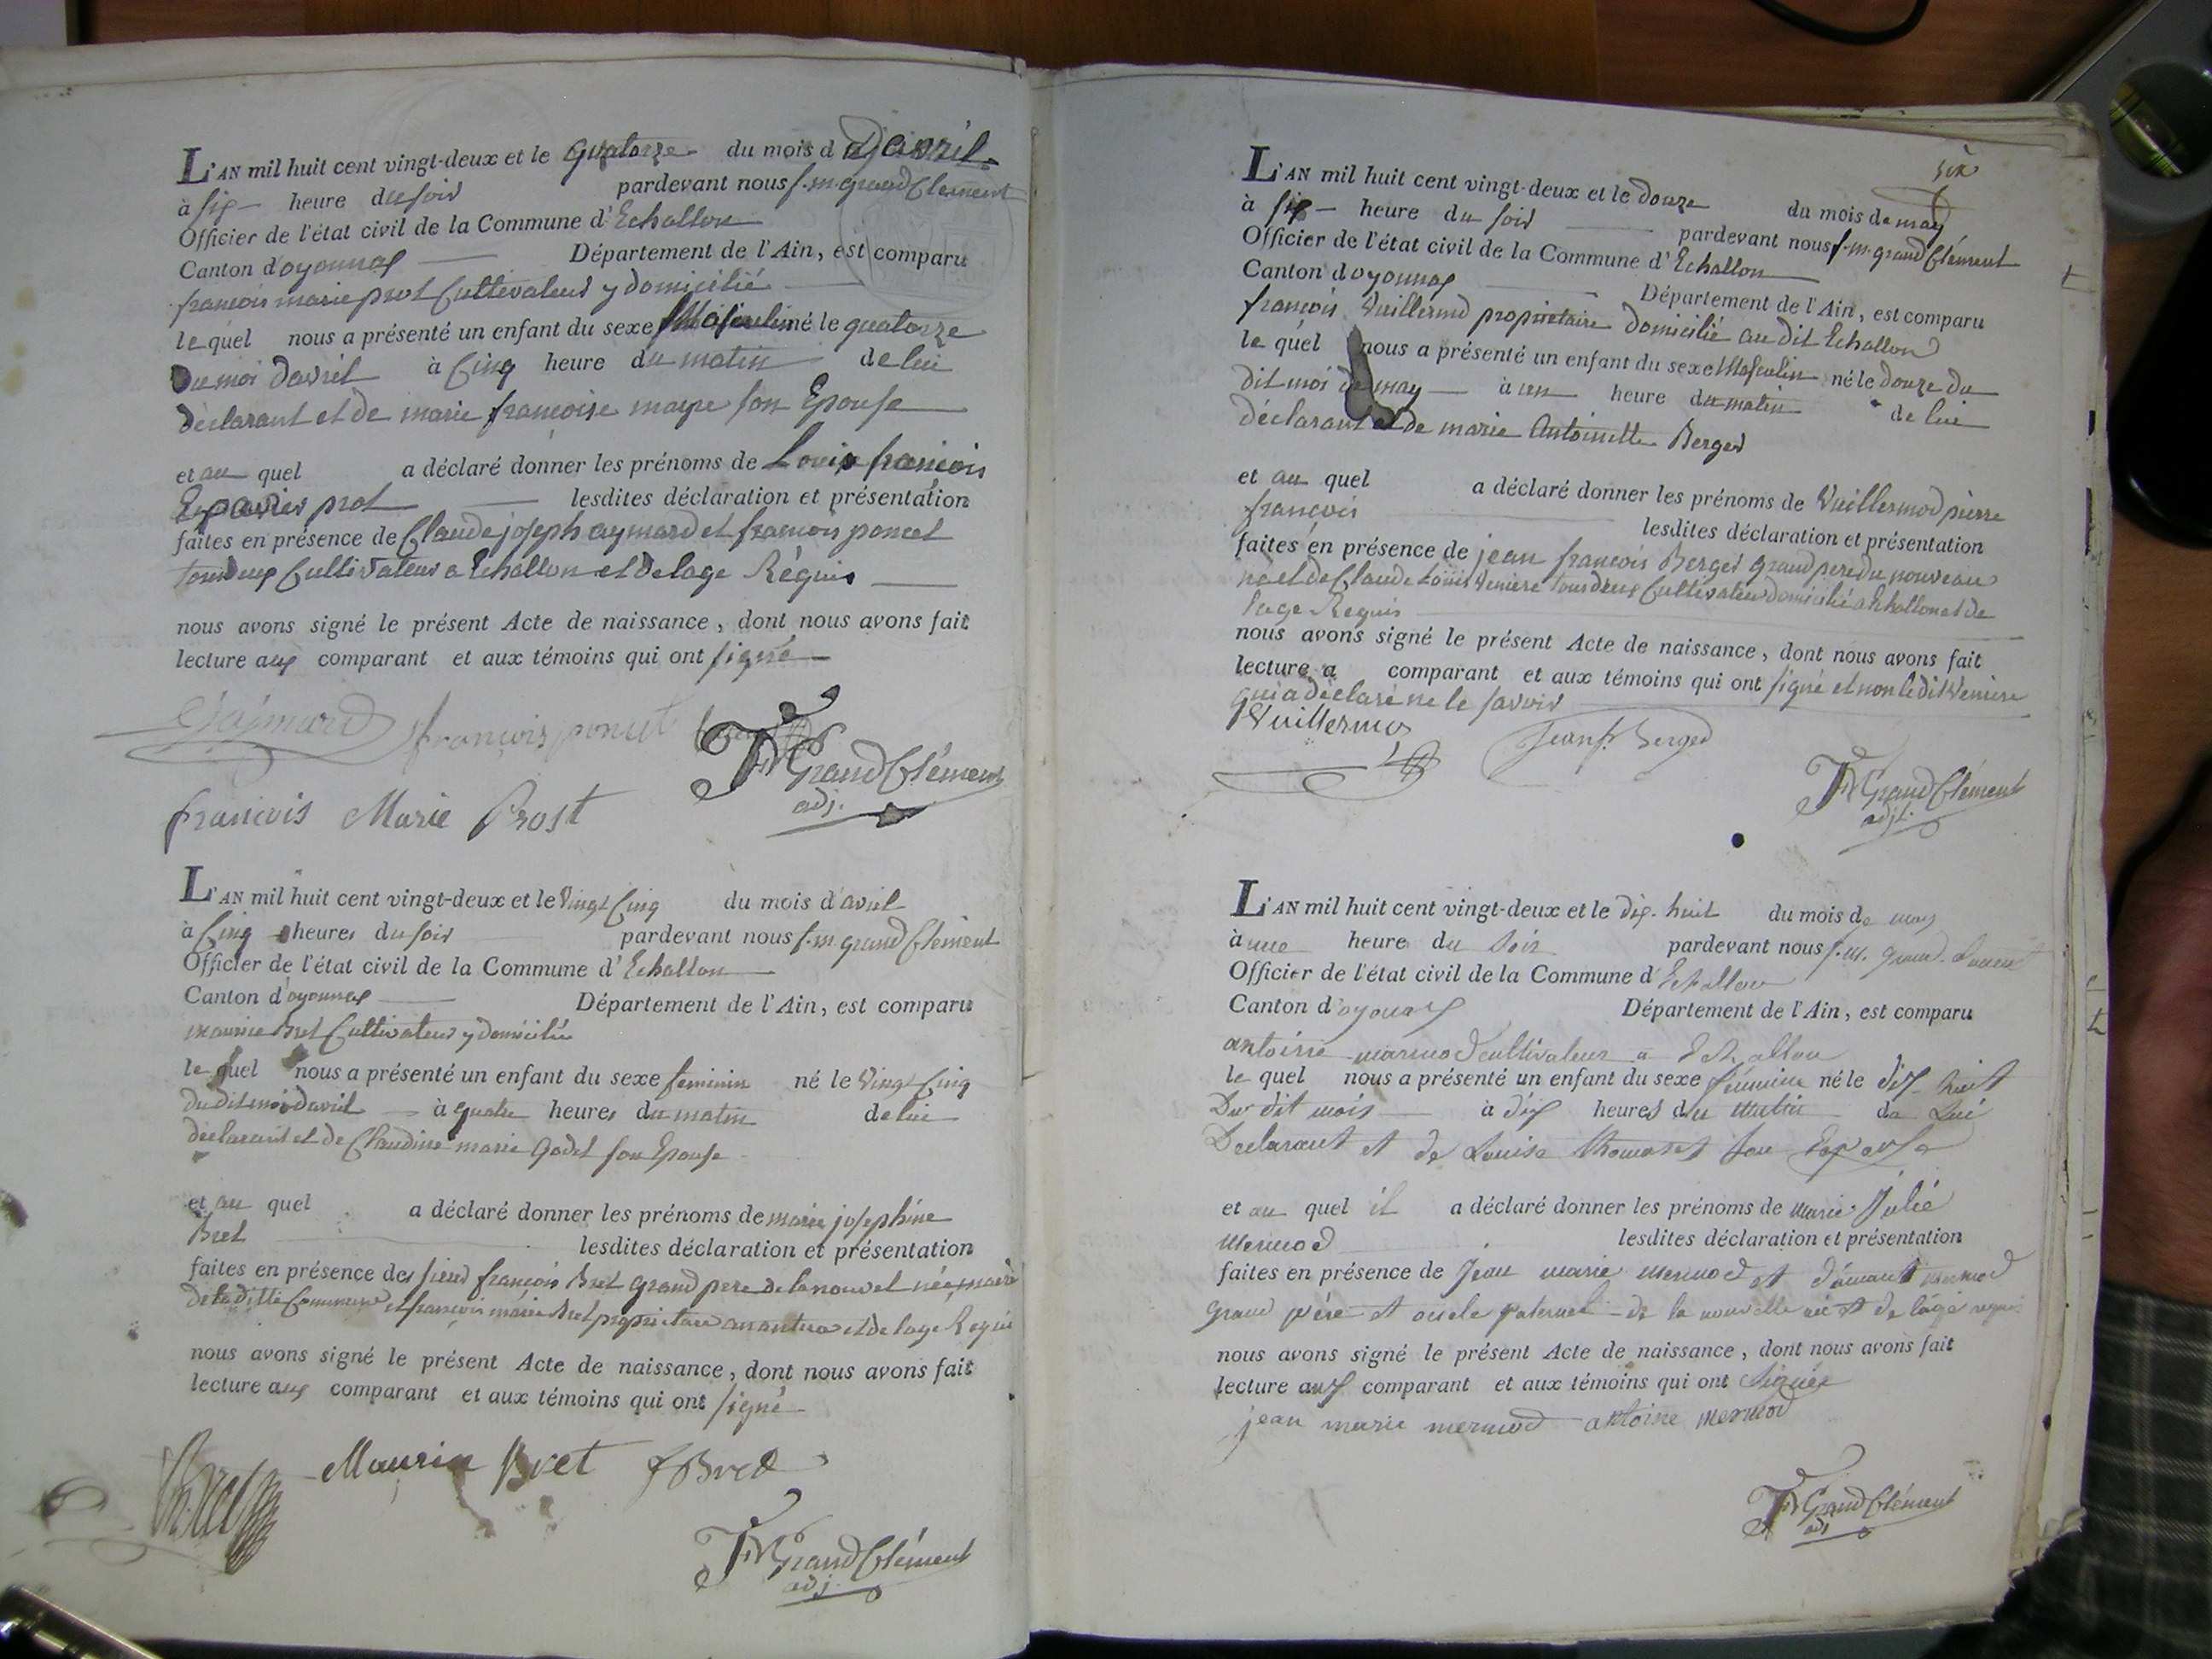 L'AN mil huit cent vingt-deux et le quatorze du mois d'avril
à six heure du soir pardevant nous f. m. grand Clement
Officier de l'état civil de la Commune d'Echallon
Canton d'oyonnax Département de l'Ain, est comparu
françois marie prot Cultivateur y domicilié
le quel nous a présenté un enfant du sexe Masculin né le quatorze
du moi davril à Cinq heure du matin de lui
déclarant et de marie françoise mayre son Epouse
et au quel a déclaré donner les prénoms de Louis françois
Exavier prot lesdites déclaration et présentation
faites en présence de Claude joseph aymard et francois poncet
tous deux Cultivateur a Echallon et delage Réquis
nous avons signé le présent Acte de naissance, dont nous avons fait
lecture aux comparant et aux témoins qui ont signé
françois poncet
FM Grand Clément
adj.
francois Marie Prost
L'AN mil huit cent vingt-deux et le Vingt Cinq du mois d'avril
à Cinq heures du soir pardevant nous f. m. grand Clément
Officier de l'état civil de la Commune d'Echallon
Canton d'oyonnax Département de l'Ain, est comparu
maurice Bret Cultivateur y domicilié
le quel nous a présenté un enfant du sexe feminin né le Vingt Cinq
du dit moi davril à quatre heures du matin de lui
declarant et de Claudine marie Godet son Epouse
et au quel a déclaré donner les prénoms de marie josephine
Bret lesdites déclaration et présentation
faites en présence des sieur françois Bret grand pere de la nouvel née maire
de la ditte Commune et françois marie Bret propriétaire a nantua et de lage Requi
nous avons signé le présent Acte de naissance, dont nous avons fait
lecture aux comparant et aux témoins qui ont signé
Bret Maurice Bret f Bret
FM Grand Clément
adj.
six
L'AN mil huit cent vingt-deux et le douze du mois de may
à six heure du soir pardevant nous f. m. grand Clément
Officier de l'état civil de la Commune d'Echallon
Canton doyonnax Département de l'Ain, est comparu
françois Vuillermod propriétaire domicilié au dit Echallon
le quel nous a présenté un enfant du sexe Masculin né le douze du
dit moi de may à un heure du matin de lui
déclarant et de marie Antoinette Berger
et au quel a déclaré donner les prénoms de Vuillermod pierre
françois lesdites déclaration et présentation
faites en présence de jean françois Berger grand pere du nouveau
né et de Claude Louis Veniere tous deux Cultivateur domicilié a Echallon et de
lage Requis
nous avons signé le présent Acte de naissance, dont nous avons fait
lecture a comparant et aux témoins qui ont signé et non le dit Veniere
qui a déclaré ne le savoir
Vuillermoz Jean fr. Berger
FM Grand Clément
adjt.
L'AN mil huit cent vingt-deux et le dix-huit du mois de may
à une heure du soir pardevant nous f. m. grand Clement
Officier de l'état civil de la Commune d'Echallon
Canton d'oyonax Département de l'Ain, est comparu
antoine mermod cultivateur a Echallon
le quel nous a présenté un enfant du sexe féminin né le dix huit
Du dit mois à dix heures du matin de Lui
Declarant et de Louise thomasset son Epouse
et au quel il a déclaré donner les prénoms de marie Julie
mermod lesdites déclaration et présentation
faites en présence de Jean marie mermod et mermod
grand pére et oncle paternel de la nouvelle née et de lage requis
nous avons signé le présent Acte de naissance, dont nous avons fait
lecture aux comparant et aux témoins qui ont Signée
jean marie mermod antoine mermod
FM Grand Clément
adj